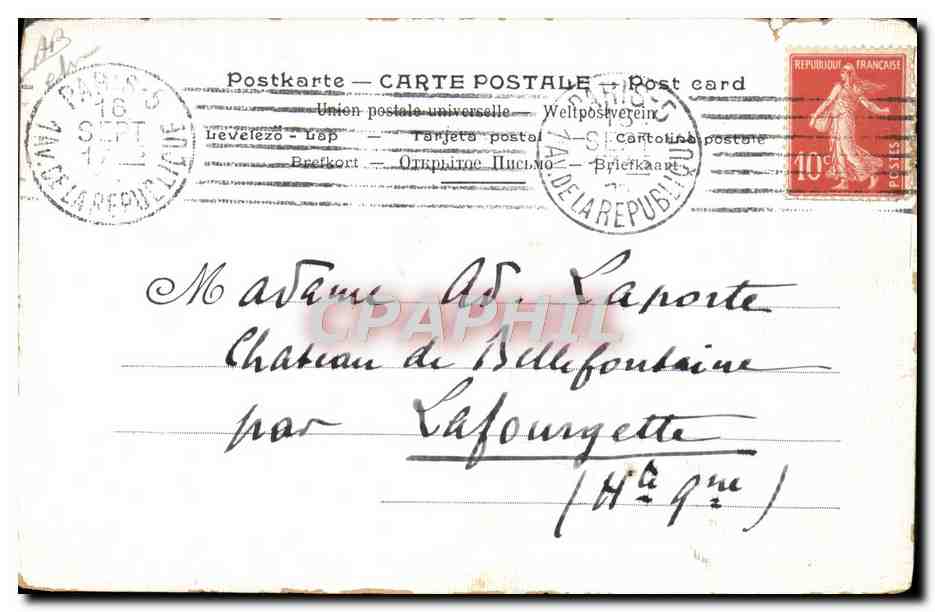 AB
PARIS-5
16
SEPT
1 AV. DE LA REPUBLIQUE
REPUBLIQUE FRANCAISE
10c
POSTES
Postkarte — CARTE POSTALE — Post card
Union postale universelle Weltpostverein
Levelezö-Lap — Tarjeta postal — Cartolina postale
Brefkort — Открытое Письмо — Briefkaart
1 AV. DE LA REPUBLIQUE
Madame Ad. Laporte
CPAPHIL
Chateau de Bellefontaine
par Lafourgette
(Hte Gne)